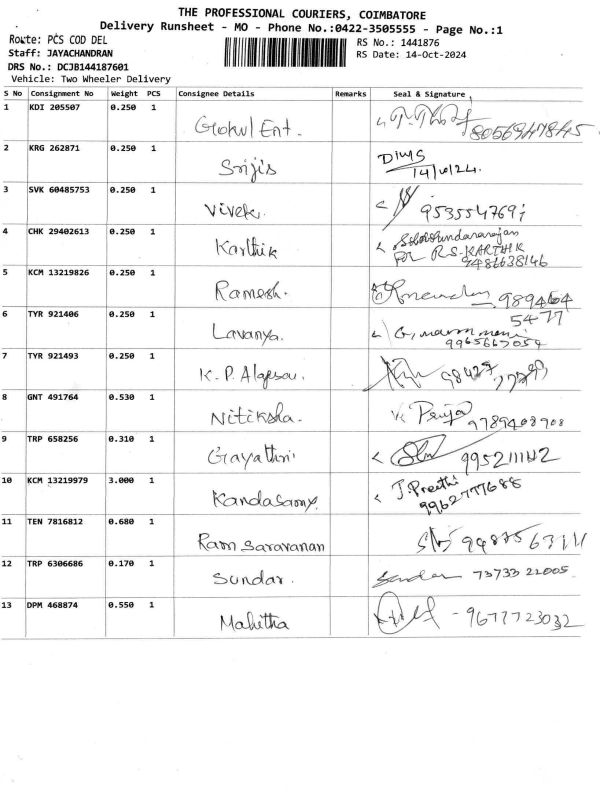 THE PROFESSIONAL COURIERS, COIMBATORE
Delivery Runsheet - MO - Phone No.:0422-3505555 - Page No.:1
Route: PCS COD DEL
RS No.: 1441876
Staff: JAYACHANDRAN
RS Date: 14-Oct-2024
DRS No.: DCJB144187601
Vehicle: Two Wheeler Delivery
S No Consignment No Weight PCS Consignee Details Remarks Seal & Signature
1 KDI 205507 0.250 1
Gokul Ent.
2 KRG 262871 0.250 1
Srijis
3 SVK 60485753 0.250 1
Vivek.
4 CHK 29402613 0.250 1
Karthik For R.S-KARTHIK
9486638146
5 KCM 13219826 0.250 1
Ramesh. 989464
6 TYR 921406 0.250 1 5477
Lavanya. 9965667054
7 TYR 921493 0.250 1
K.P. Alagesan.
8 GNT 491764 0.530 1
Nitiksha. Penja 9789408908
9 TRP 658256 0.310 1
Gayathri 9952111142
10 KCM 13219979 3.000 1 J.Preethi
Kandasamy. 9962777688
11 TEN 7816812 0.680 1
Ram Saravanan
12 TRP 6306686 0.170 1
Sundar. 73733 22005
13 DPM 468874 0.550 1
Mahitha - 9677723032